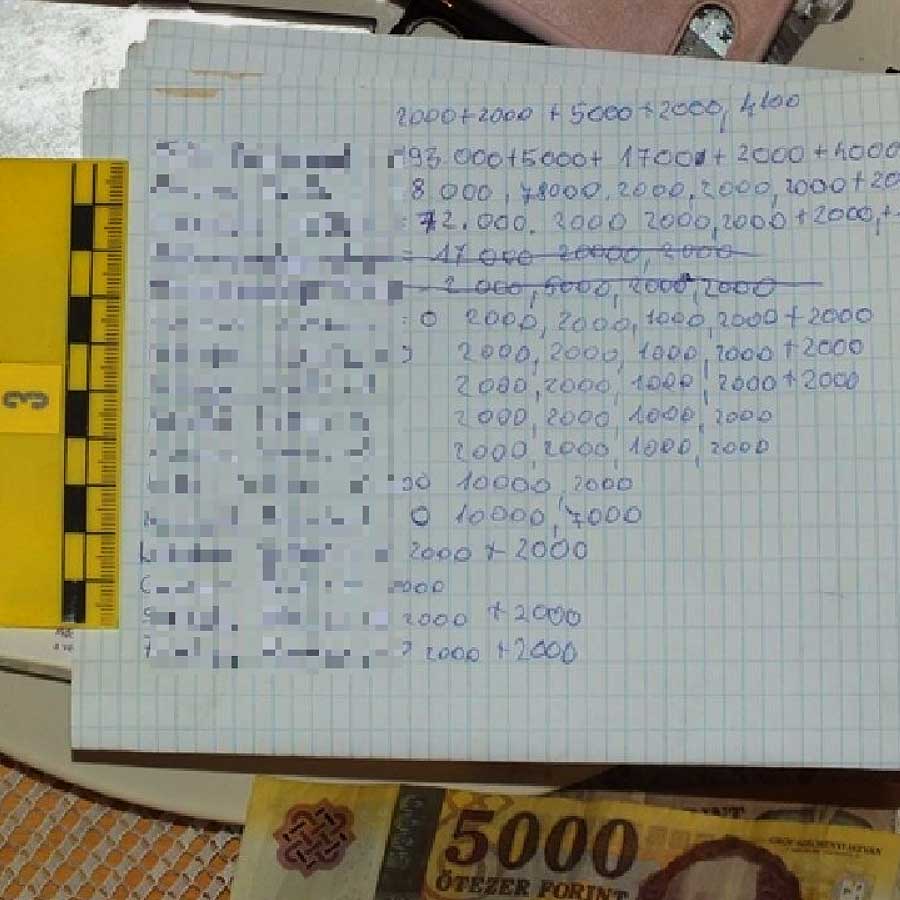 2000+2000 + 5000+2000, 4100
193.000+5000+ 17000+ 2000 +4000
8 000, 78000, 2000, 2000, 2000+20
72.000, 2000 2000, 2000+2000, +
= 17 000 20000, 2000
2 000, 5000, 2000, 2000
: 0 2000, 2000, 1000, 2000+2000
2000, 2000, 1000, 2000+2000
2000, 2000, 1000, 2000+2000
2000, 2000, 1000, 2000
2000, 2000, 1000, 2000
00 10000, 2000
0 10000, 7000
2000 + 2000
2000
2000 +2000
2000 +2000
3
5000
ÖTEZER FORINT
GRÓF SZÉCHENYI ISTVÁN